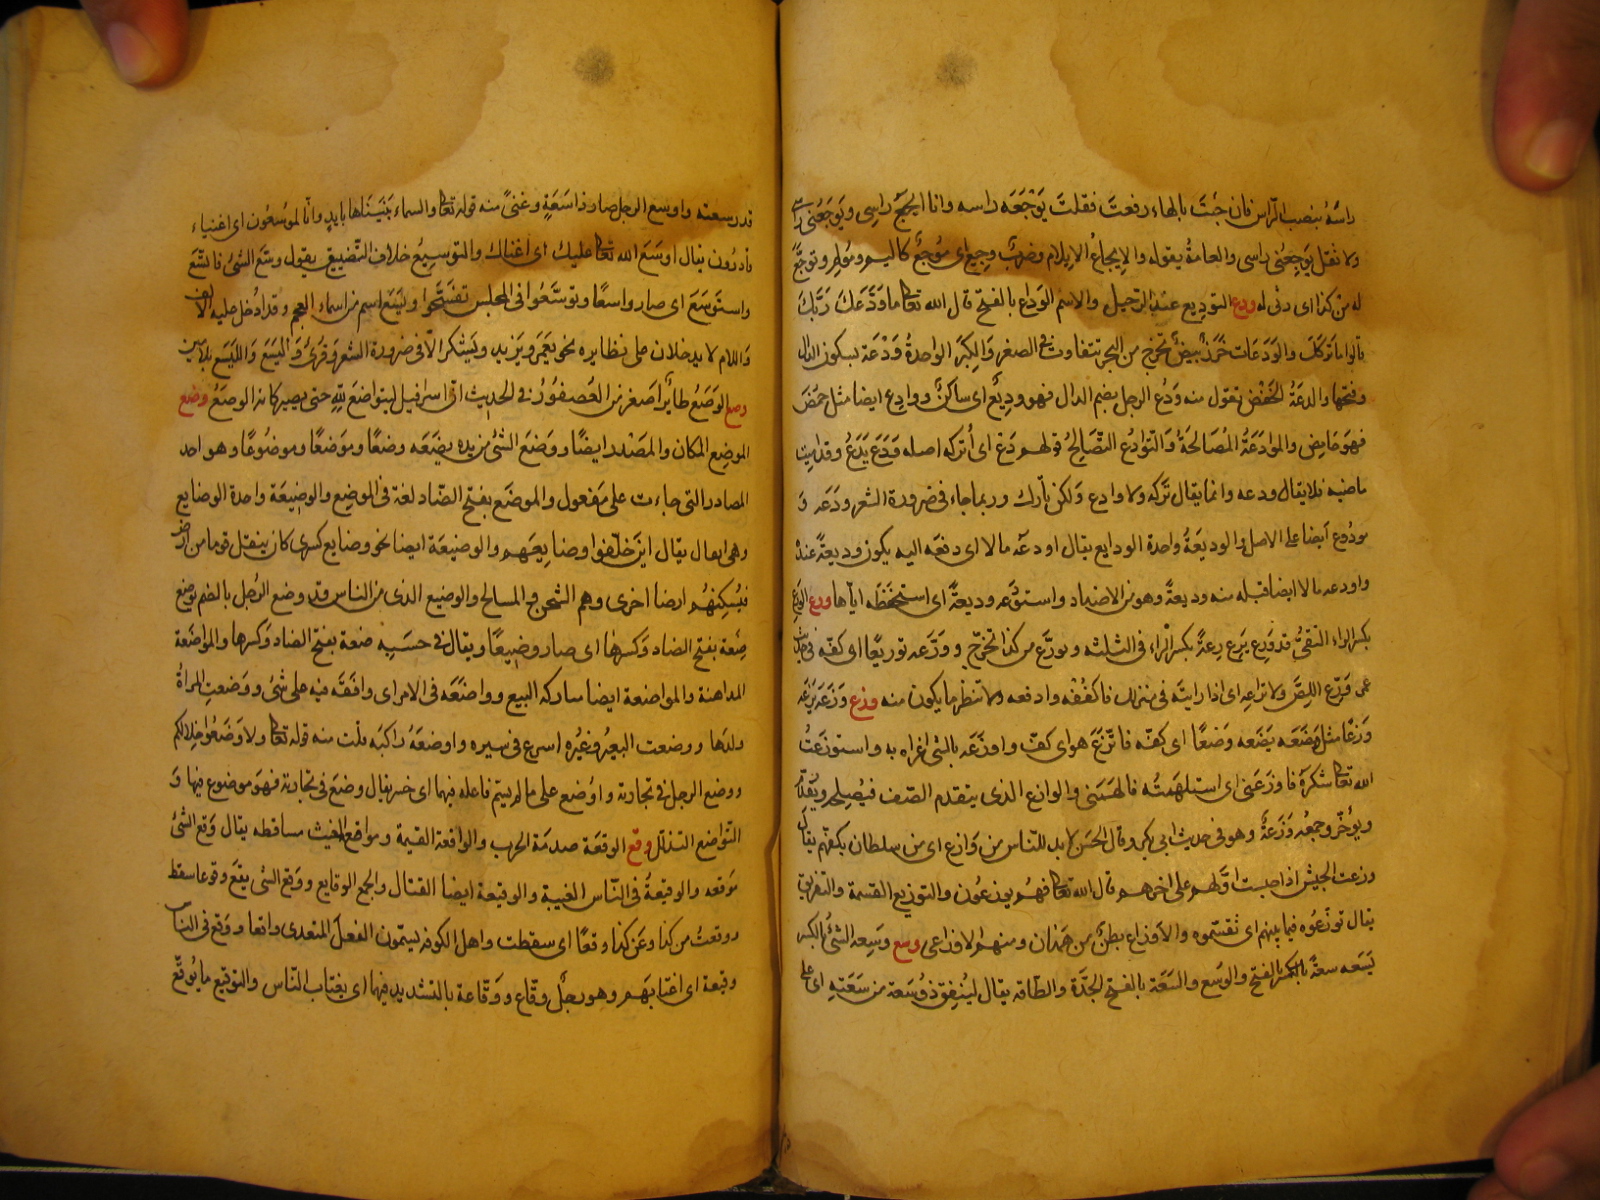 راسَهُ بنصب الراس فان جئت بالهاء رفعت فقلت يَوْجَعَه راسه وانا ايجع راسِى ويَوجَعُنى راسى
ولا تقل يَوجِعُنى راسى والعامة يقوله والإيجاع الايلام وضربٌ وجيع اى مُوجعٌ كاليم ومؤلم وتوجّع
له من كذا اى رثى له ودع التوديع عند الرحيل والاسم الوَداع بالفتح قال الله تعالى ما وَدَّعَكَ رَبُّكَ
قالوا ما تركك والوَدَعَات خَرَزٌ بيضٌ تخرج من البحر تتفاوت فى الصغر والكِبَر الواحدةُ وَدْعَة بسكون الدال
وفتحها والدعَةُ الخَفْض تقول منه وَدُع الرجل بضم الدال فهو ودِيع اى ساكن ووادِع ايضا مثل حَمُضَ
فهو حَامِض والموادَعَةُ المُصَالحَةُ والتّوادُع التّصَالحُ قولهم دَعْ اى أترك اصله وَدَعَ يَدَعُ وقد اميت
ماضيه فلا يقال ودعه وانما يقال تركه ولا وادِع ولكن تارك وربما جاء فى ضرورة الشعر ودَعَه وَ
مودُوع أيضا على الاصل والوديعَةُ واحدة الودايع يقال اودعه مالا اى دفعه اليه يكون وديعةً عنده
واودعه مالا ايضا قبله منه وديعةً وهو من الاضداد واستودَعه وديعةً اى استحفَظَه اياها ورع الورِع
بكسر الراء التقىُّ قد وَرِع يَرِع رِعةً بكسر الراء فى الثلثه وتورّع من كذا تحرّج وورّعه توريعًا اى كفّه فى حديث
عمر وَرّع اللِصّ ولا تراعِه اى اذا رايته فى منزلك فاكفُفْه وادفعه ولا تنظر ما يكون منه وزع وَزَعَه يَزَعه
وَزْعًا مثل وَضَعَه يَضَعه وَضْعًا اى كفّه فاتّزَعَ هو اى كفّ واوزَعَه بالشى اغراه به واستوزَعتُ
الله تعالى شكرَه فاوزَعَنى اى استلهَمتُه فالهَمَنى والوازِع الذى يتقدم الصّف فيُصلِحه ويُقدّم
ويؤخّر وجمعُه وَزَعَةٌ وهو فى حديث ابى بكر وقال الحَسَن لا بد للناس من وَازِع اى من سلطان يكفّهم يقال
وزعت الجيش اذا حبست اوّلهم على اخرهم قال الله تعالى فهُم يوزعُون والتوزيع القسمة والتفريق
يقال توزّعُوه فيما بينهم اى تقسّموه والأوزاع بطنٌ من همدان ومنهم الاوزاعى وسع وَسِعه الشئُ بالكسر
يَسَعه سعةً بالكسر بالفتح والوُسع والسَعَة بالفتح الجِدَة والطاقه يقال ليُنفِق ذو سَعَة من سَعَتِهِ اى على
قدر سعته واوسع الرجل صار ذا سَعَةٍ وغنىً منه قوله تعالى والسماء بَنَيْنَاها بايدٍ وانّا لمُوسِعُون اى اغنياء
قادرُون يقال اوسَعَ الله تعالى عليك اى اغناك والتوسِيعُ خلاف التّضييق يقول وسّع الشئ فاتّسَع
واستَوسَعَ اى صار واسعًا وتوسّعُوا فى المجلس تفسّحوا ويَسَع اسم من اسماء العجم وقد ادخل عليه الالف
واللام لا يدخلان على نظايره نحو يَعمَر ويَزيد ويَشكر الّا فى ضرورة الشعر وقرئ وَاليَسَعَ وَاللَّيسَعَ بلامين
وصع الوَصَعُ طايرٌ اصغر من العُصفوُر فى الحديث انّ اسرافيل ليتواضعَ لِلّهِ حتى يصير كانه الوصَعُ وضع
الموضِع المكان والمصْدر ايضًا ووَضَعَ الشئَ من يده يضَعَه وضعًا وموَضعًا وموضُوعًا وهو احد
المصادر التى جاءت على مَفعول والموضَع بفتح الضاد لغة فى الموضِع والوضِيعَة واحدة الوضايع
وهى اثقال يقال اينَ خلّفوا وضايِعَهم والوضيعَة ايضا نحو وضايع كسرى كان ينقل قوما من ارض
فيُسكِنهُم ارضا اخرى وهم الشِحَن والمسالح والوضيع الدنى من الناس وقد وضع الرّجل بالضم يوضُع
ضِعة بفتح الضاد وَكَسرها اى صار وضِيعًا ويقال فى حسَبِه ضعة بفتح الضاد وَكسرها والمواضَعة
المداهنة والمواضعة ايضا متاركه البيع وواضعَه فى الامر اى وافَقَه فيه على شئ ووَضَعتِ المراةُ
ولدَها ووضعت البعيرُ وغيُره اسرع فى سيره واوضعَهُ راكبُه قلت منه قوله تعالى ولَاوضَعُوا خِلالكم
ووضع الرجل فى تجارته واوُضع على ما لم يتم فاعله فيهما اى خسر يقال وضعَ فى تجارته فهوَ موضوع فيها وَ
التّواضع التذلّل وقع الوقعَة صدمَة الحرب والواقعة القيمة ومواقع الغيث مساقطه يقال وَقع الشئُ
مَوقعه والوقيعَةُ فى النّاس الغيبة والوقيعة ايضا القتال والجمع الوقايع ووَقع الشئ يقع وقوعا سقط
ووقعتُ من كذا وعَن كذا وقعًا اى سقطت واهل الكوفه ليسمّون الفعلَ المتعدى واقعا ووَقع فى الناس
وقيعة اى اغتابَهم وهو رجلٌ وقّاع ووَقّاعة بالتشديد فيهما اى يغتاب النّاس والتوقيع ما يُوقّع